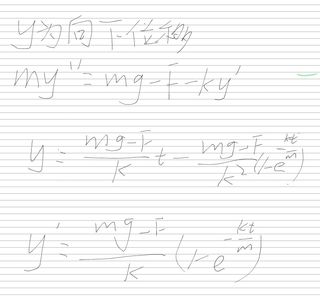 y为向下位移
my''=mg-F-ky'
y=\frac{mg-F}{k}t-\frac{mg-F}{k^2}(1-e^{-\frac{kt}{m}})
y'=\frac{mg-F}{k}(1-e^{-\frac{kt}{m}})